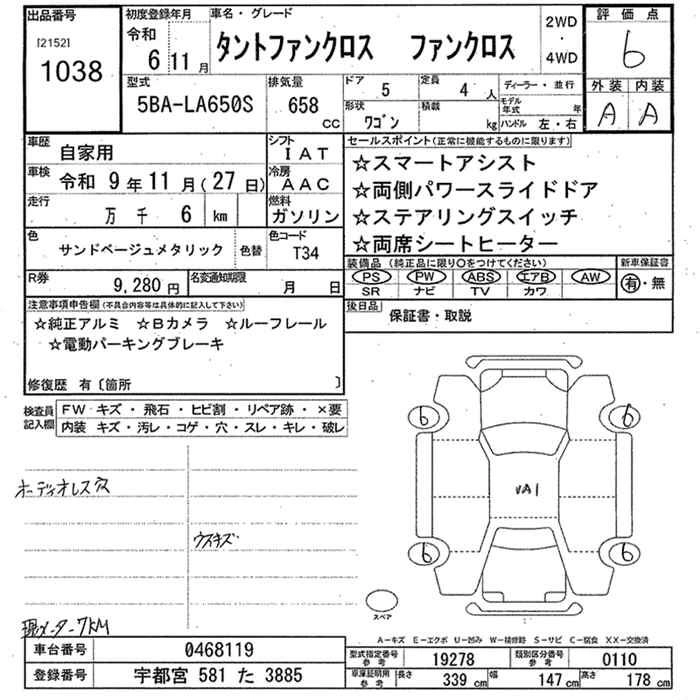 出品番号 初度登録年月 車名・グレード 2WD・4WD 評価点
[2152] 1038 令和 6 11月 タントファンクロス ファンクロス 6
型式 排気量 ドア 5 定員 4人 ディーラー・並行 外装 内装
5BA-LA650S 658 CC 形状 ワゴン 積載 kg モデル年式 年 ハンドル 左・右 A A
車歴 自家用 シフト IAT セールスポイント(正常に機能するものに限ります)
車検 令和 9年 11月(27日) 冷房 AAC ☆スマートアシスト
☆両側パワースライドドア
走行 万 千 6 km 燃料 ガソリン ☆ステアリングスイッチ
色 サンドベージュメタリック 色替 色コード T34 ☆両席シートヒーター
装備品(純正品に限り○をつけてください) 新車保証書
R券 9,280円 名変通知期限 月 日 PS PW ABS エアB AW 有・無
SR ナビ TV カワ
注意事項申告欄(不具合内容等は具体的に記入して下さい) 後日品 保証書・取説
☆純正アルミ ☆Bカメラ ☆ルーフレール
☆電動パーキングブレーキ
修復歴 有〔箇所 〕
検査員記入欄 FW キズ・飛石・ヒビ割・リペア跡・×要
内装 キズ・汚レ・コゲ・穴・スレ・キレ・破レ
6 6
オーディオレス穴 UA1
ウスキズ
6 6
スペア
現メーター7KM
A−キズ E−エクボ U−凹み W−補修跡 S−サビ C−腐食 XX−交換済
車台番号 0468119 型式指定番号参考 19278 類別区分番号参考 0110
登録番号 宇都宮 581 た 3885 車庫証明用参考 長さ 339 cm 幅 147 cm 高さ 178 cm